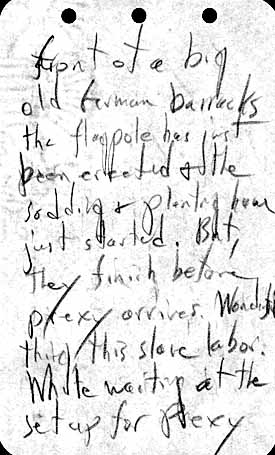 front of a big
old German barracks
the flagpole has just
been erected & the
sodding & planting have
just started. But,
they finish before
prexy arrives. Wonderful
thing this slave labor.
While waiting at the
set up for prexy